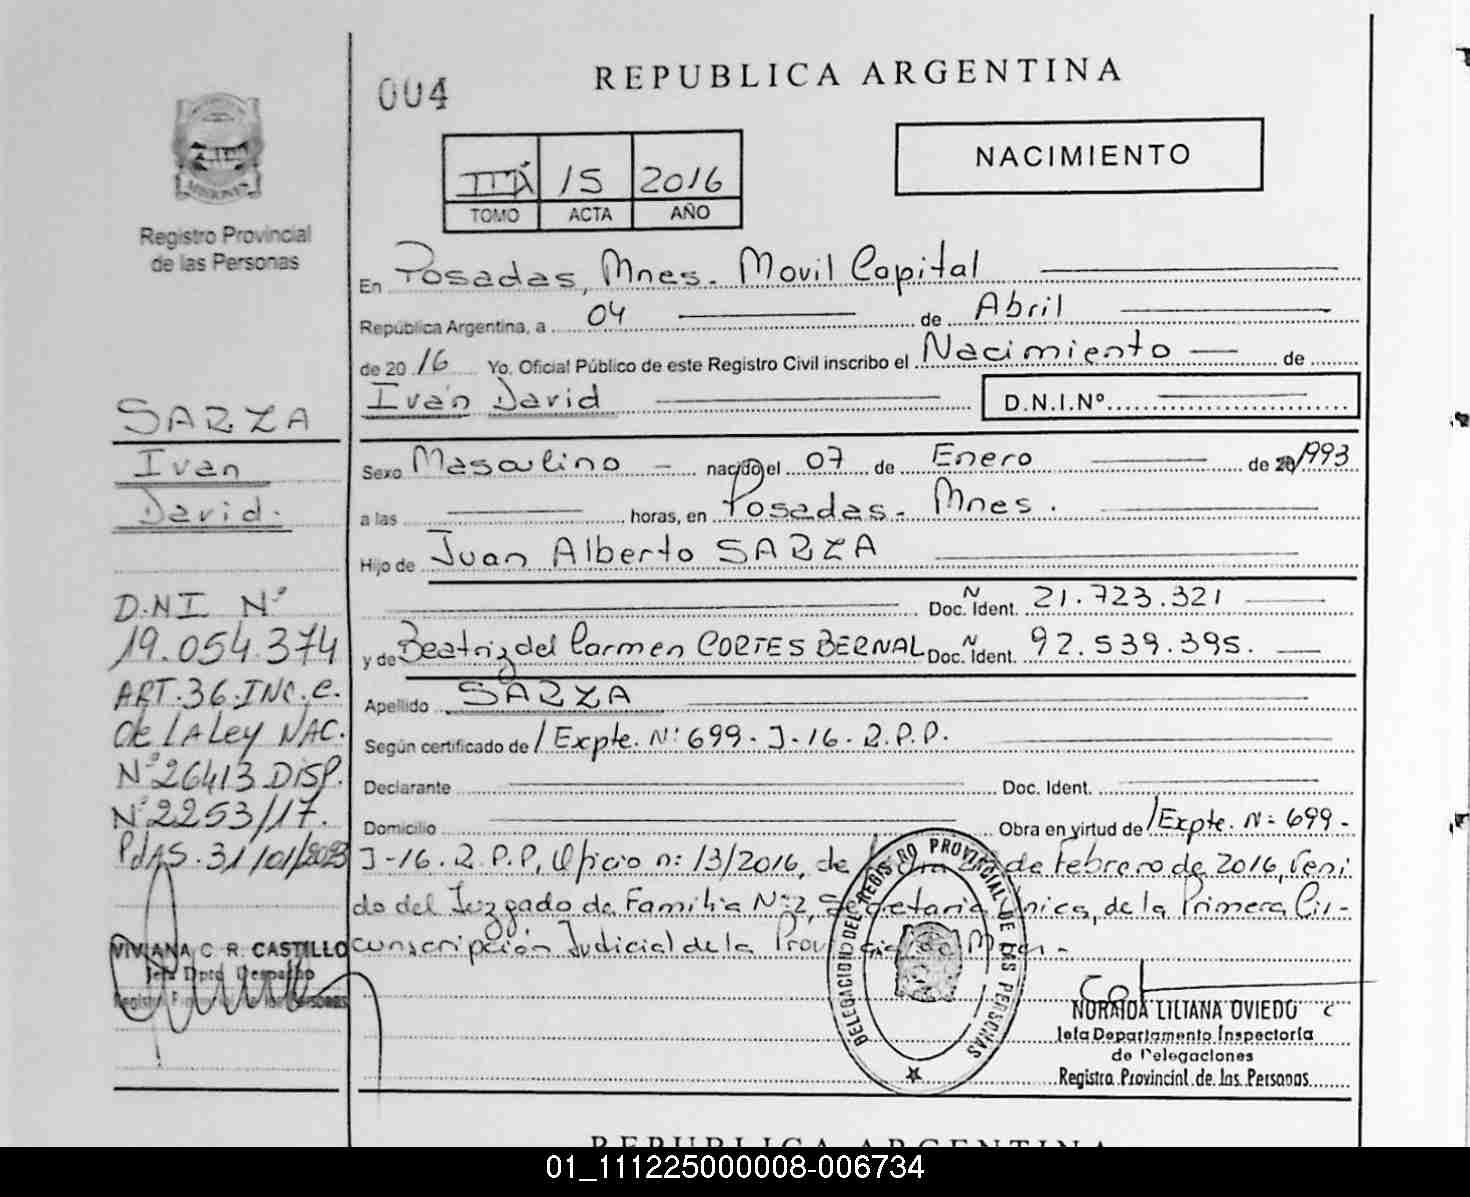 004
REPUBLICA ARGENTINA
NACIMIENTO
15 2016
TOMO ACTA AÑO
MISIONES
Registro Provincial
de las Personas
En Posadas, Mnes. Movil Capital
República Argentina, a 04 de Abril
de 2016 Yo, Oficial Público de este Registro Civil inscribo el Nacimiento de
Iván David D.N.I.Nº
Sexo Masculino nacido el 07 de Enero de 1993
a las horas, en Posadas - Mnes.
Hijo de Juan Alberto SARZA
Doc. Ident. Nº 21.723.321
y de Beatriz del Carmen CORTES BERNAL Doc. Ident. Nº 92.539.395.
Apellido SARZA
Según certificado de / Expte. Nº 699 - J - 16 - R.P.P.
Declarante Doc. Ident.
Domicilio Obra en virtud de / Expte. Nº 699 -
J-16. R.P.P, Oficio nº 13/2016, de de Febrero de 2016, veni
do del Juzgado de Familia Nº 2, Secretaria única, de la Primera Cir-
cunscripción Judicial de la Provincia de Mnes -
SARZA
Ivan
David.
D.N.I Nº
19.054.374
ART. 36. INC. e.
de LA Ley NAC.
Nº 26413 DISP.
Nº 2253/17.
PdAS. 31/01/2023
VIVIANA C. R. CASTILLO
Jefa Dpto. Despacho
Registro Provincial de las Personas
DELEGACION DEL REGISTRO PROVINCIAL DE LAS PERSONAS
NORAIDA LILIANA OVIEDO
Jefa Departamento Inspectoría
de Delegaciones
Registro Provincial de las Personas
REPUBLICA ARGENTINA
01_111225000008-006734